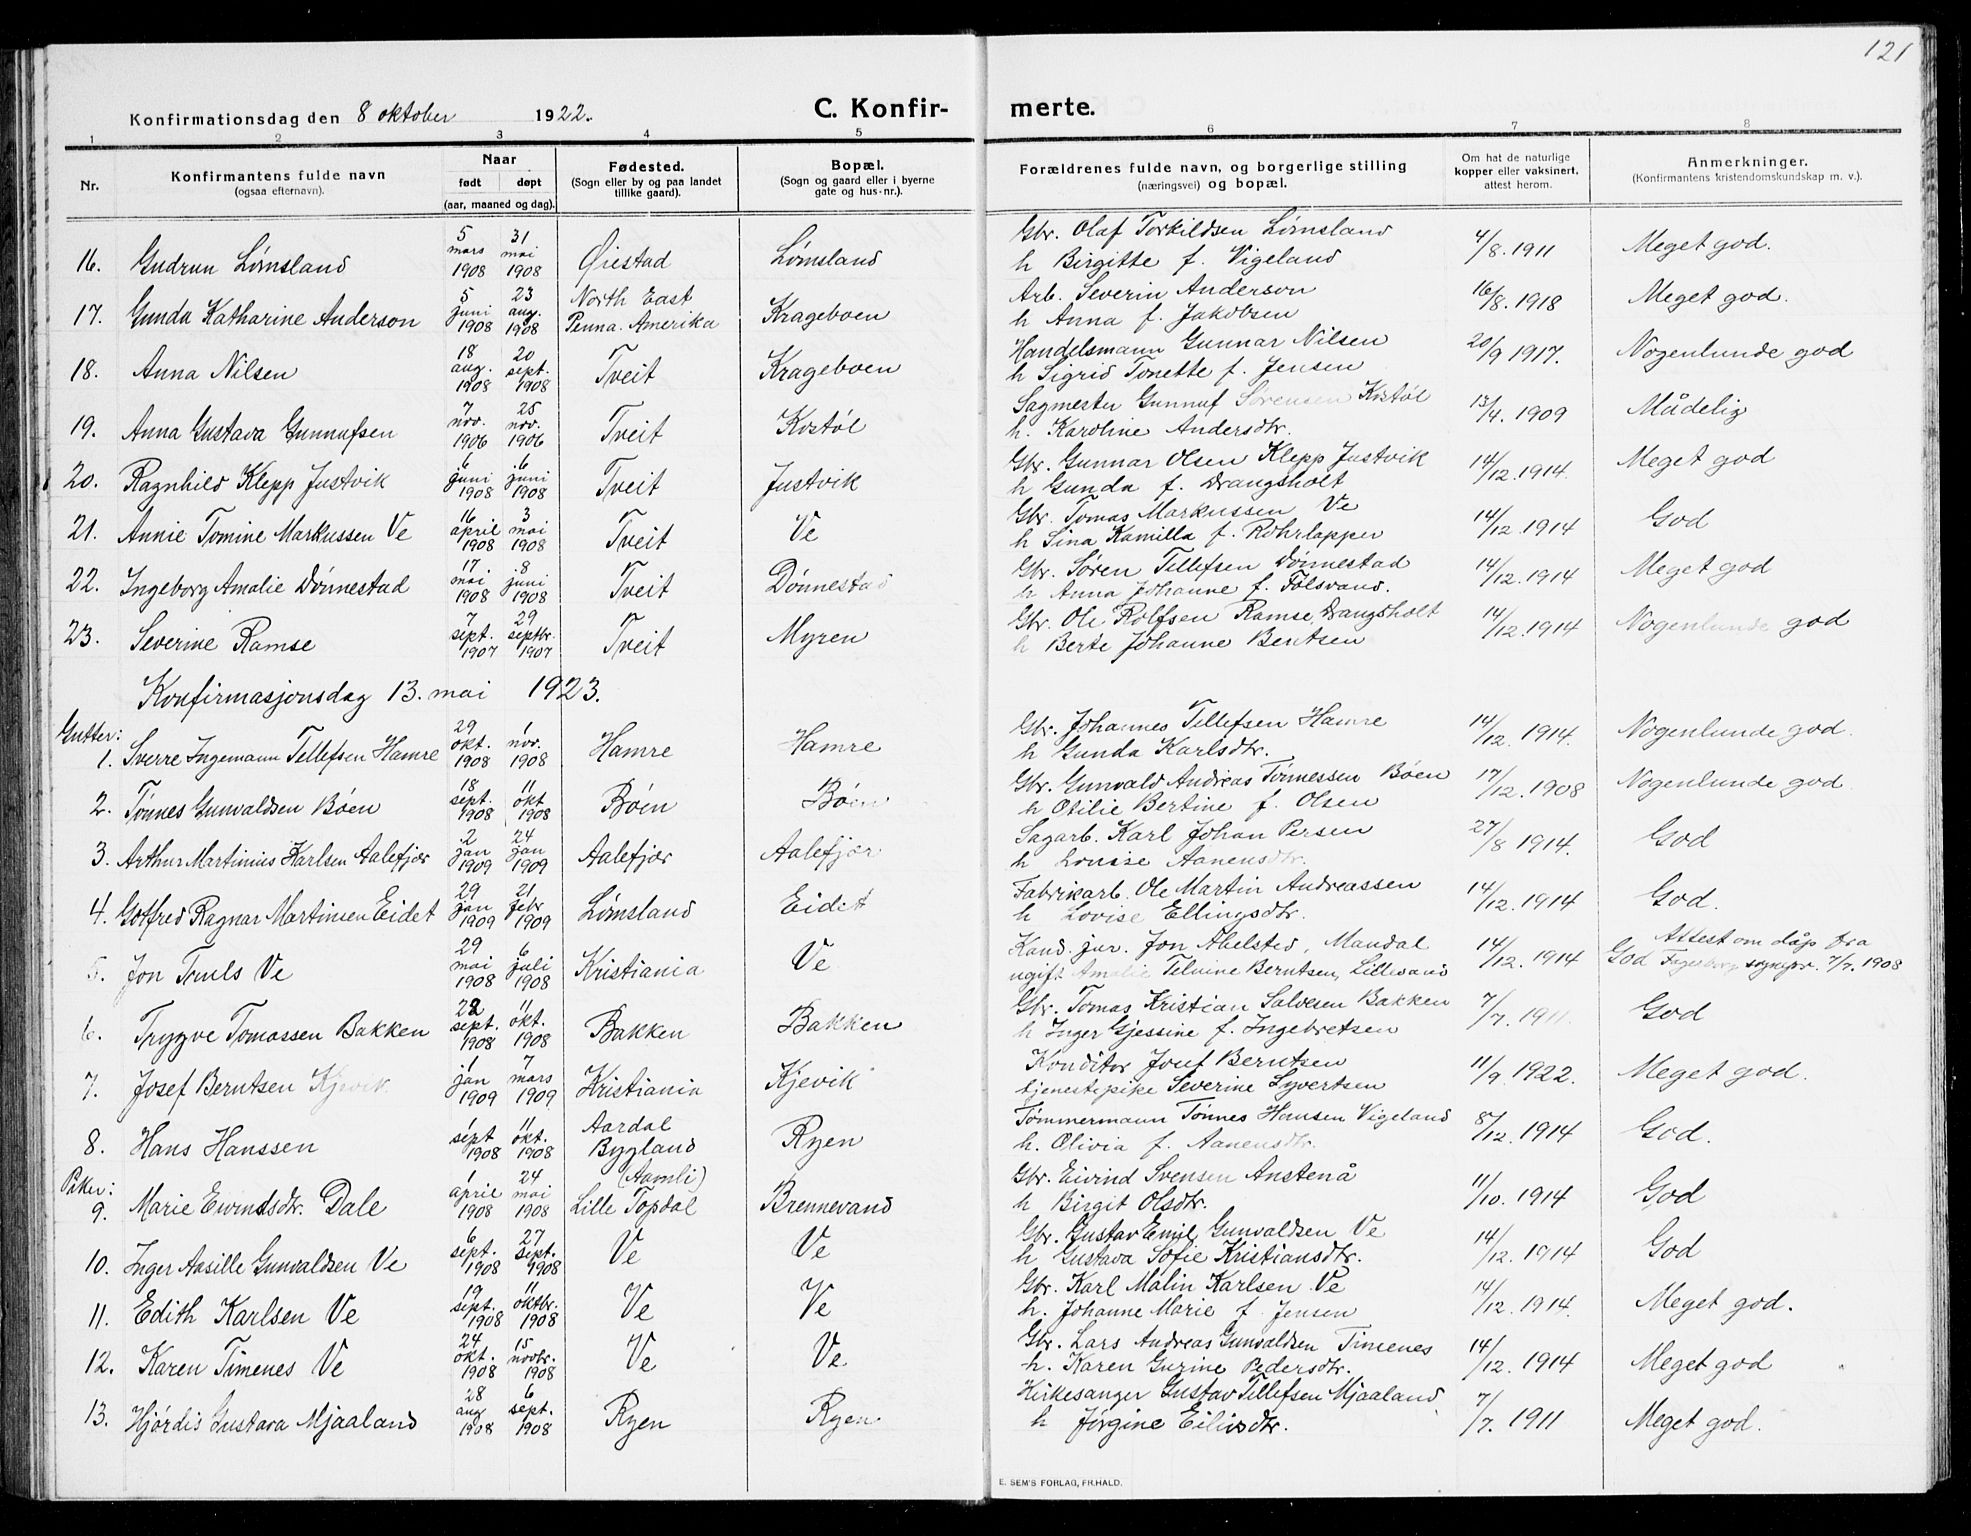 121
Konfirmationsdag den 8 oktober 1922.
C. Konfirmerte.
1 2 3 4 5 6 7 8
Nr.
Konfirmantens fulde navn
(ogsaa efternavn).
Naar
født døpt
(aar, maaned og dag).
Fødested.
(Sogn eller by og paa landet
tillike gaard).
Bopæl.
(Sogn og gaard eller i byerne
gate og hus-nr.).
Forældrenes fulde navn, og borgerlige stilling
(næringsvei) og bopæl.
Om hat de naturlige
kopper eller vaksinert,
attest herom.
Anmerkninger.
(Konfirmantens kristendomskundskap m. v.).
16. Gudrun Lømsland 5 mars 1908 31 mai 1908 Øiestad Lømsland Gbr. Olaf Torkildsen Lømsland h Birgitte f. Vigeland 4/8. 1911 Meget god.
17. Gunda Katharine Anderson 5 juni 1908 23 aug. 1908 North East Penna. Amerika Krageboen Arb. Severin Anderson h Anna f. Jakobsen 16/8. 1918 Meget god.
18. Anna Nilsen 18 aug. 1908 20 sept. 1908 Tveit Krageboen Handelsmann Gunnar Nilsen h Sigrid Tonette f. Jensen 20/9 1917. Nogenlunde god
19. Anna Gustava Gunnufsen 7 nov. 1906 25 nov. 1906 Tveit Kostøl Sagmester Gunnuf Sørensen Kostøl h. Karoline Andersdtr. 13/4. 1909 Mådelig
20. Ragnhild Klepp Justvik 6 juni 1908 6 juni 1908 Tveit Justvik Gbr. Gunnar Olsen Klepp Justvik h Gunda f. Drangsholt 14/12. 1914. Meget god
21. Annie Tomine Markussen Ve 16 april 1908 3 mai 1908 Tveit Ve Gbr. Tomas Markussen Ve h Sina Kamilla f. Rohrlapper 14/12. 1914 God
22. Ingeborg Amalie Dønnestad 17. mai 1908 8 juni 1908 Tveit Dønnestad Gbr. Søren Tellefsen Dønnestad h Anna Johanne f. Følsvand. 14/12. 1914 Meget god
23. Severine Ramse 7 sept. 1907 29 septbr. 1907 Tveit Myren Gbr. Ole Rolfsen Ramse, Drangsholt h Berte Johanne Bentsen 14/12. 1914 Nogenlunde god
Konfirmasjonsdag 13. mai 1923.
Gutter:
1. Sverre Ingemann Tellefsen Hamre 29 okt. 1908 1 nov. 1908 Hamre Hamre Gbr. Johannes Tellefsen Hamre h Gunda Karlsdtr. 14/12. 1914. Nogenlunde god.
2. Tønnes Gunvaldsen Bøen 18 sept. 1908 11 okt 1908 Bøen Bøen Gbr. Gunvald Andreas Tønnessen Bøen h Otilie Bertine f. Olsen 17/12. 1908 Nogenlunde god
3. Arthur Martinius Karlsen Aalefjær 2 jan 1909 24 jan 1909 Aalefjær Aalefjær Sagarb. Karl Johan Persen h Louise Aanensdtr. 27/8 1914. God
4. Gotfred Ragnar Martinsen Eidet 29 jan 1909 21 febr 1909 Lømsland Eidet Fabrikarb. Ole Martin Andreassen h Lovise Ellingsdtr. 14/12. 1914 God.
5. Jon Truls Ve 29 mai 1908 6 juli 1908 Kristiania Ve Kand. jur. Jon Abelsted, Mandal ugift Amalie Telvine Berntsen, Lillesand 14/12. 1914 God Attest om dåp fra sognepr. 7/7. 1908
6. Trygve Tomassen Bakken 22 sept. 1908 11 okt. 1908 Bakken Bakken Gbr. Tomas Kristian Salvesen Bakken h Inger Gjessine f. Ingebretsen 7/7. 1911. God
7. Josef Berntsen Kjevik. 1 jan 1909 7 mars 1909 Kristiania Kjevik Konditor Josef Berntsen tjenestepike Severine Syvertsen 11/9. 1922. Meget god.
8. Hans Hanssen 1 sept 1908 11 okt. 1908 Aardal Bygland Ryen Tømmermann Tønnes Hansen Vigeland h. Olivia f. Aanensdtr. 8/12. 1914 God.
Piker:
9. Marie Eivindsdtr. Dale 1 april 1908 24 mai 1908 (Aamli) Lille Topdal Brennevand Gbr. Eivind Svensen Anstenå h Birgit Olsdtr. 11/10. 1914 God
10. Inger Aasille Gunvaldsen Ve 6 sept. 1908 27 sept. 1908 Ve Ve Gbr. Gustav Emil Gunvaldsen Ve h Gustava Sofie Kristiansdtr. 14/12. 1914 God
11. Edith Karlsen Ve 19 sept. 1908 11 oktbr. 1908 Ve Ve Gbr. Karl Malin Karlsen Ve h. Johanne Marie f. Jensen 14/12. 1914. Meget god.
12. Karen Timenes Ve 24 okt. 1908 15 novbr. 1908 Ve Ve Gbr. Lars Andreas Gunvaldsen Timenes h. Karen Gurine Pedersdtr. 14/12. 1914 Meget god
13. Hjørdis Gustava Mjaaland 28 aug 1908 6 sept. 1908 Ryen Ryen Kirkesanger Gustav Tellefsen Mjaaland h Jørgine Eilivsdtr. 7/7. 1911 Meget god.
E. SEM'S FORLAG, FR.HALD.